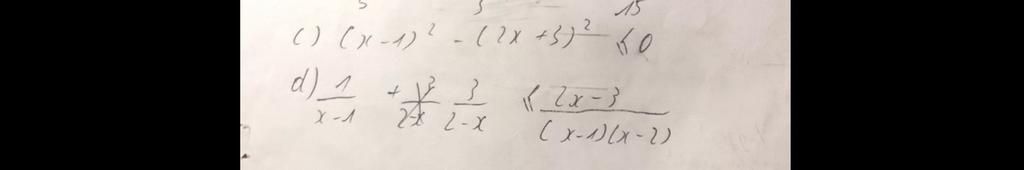 15
c) (x-1)² - (2x+3)² ≤ 0
d) 1/(x-1) + 3/(2-x) ≤ (2x-3)/((x-1)(x-2))